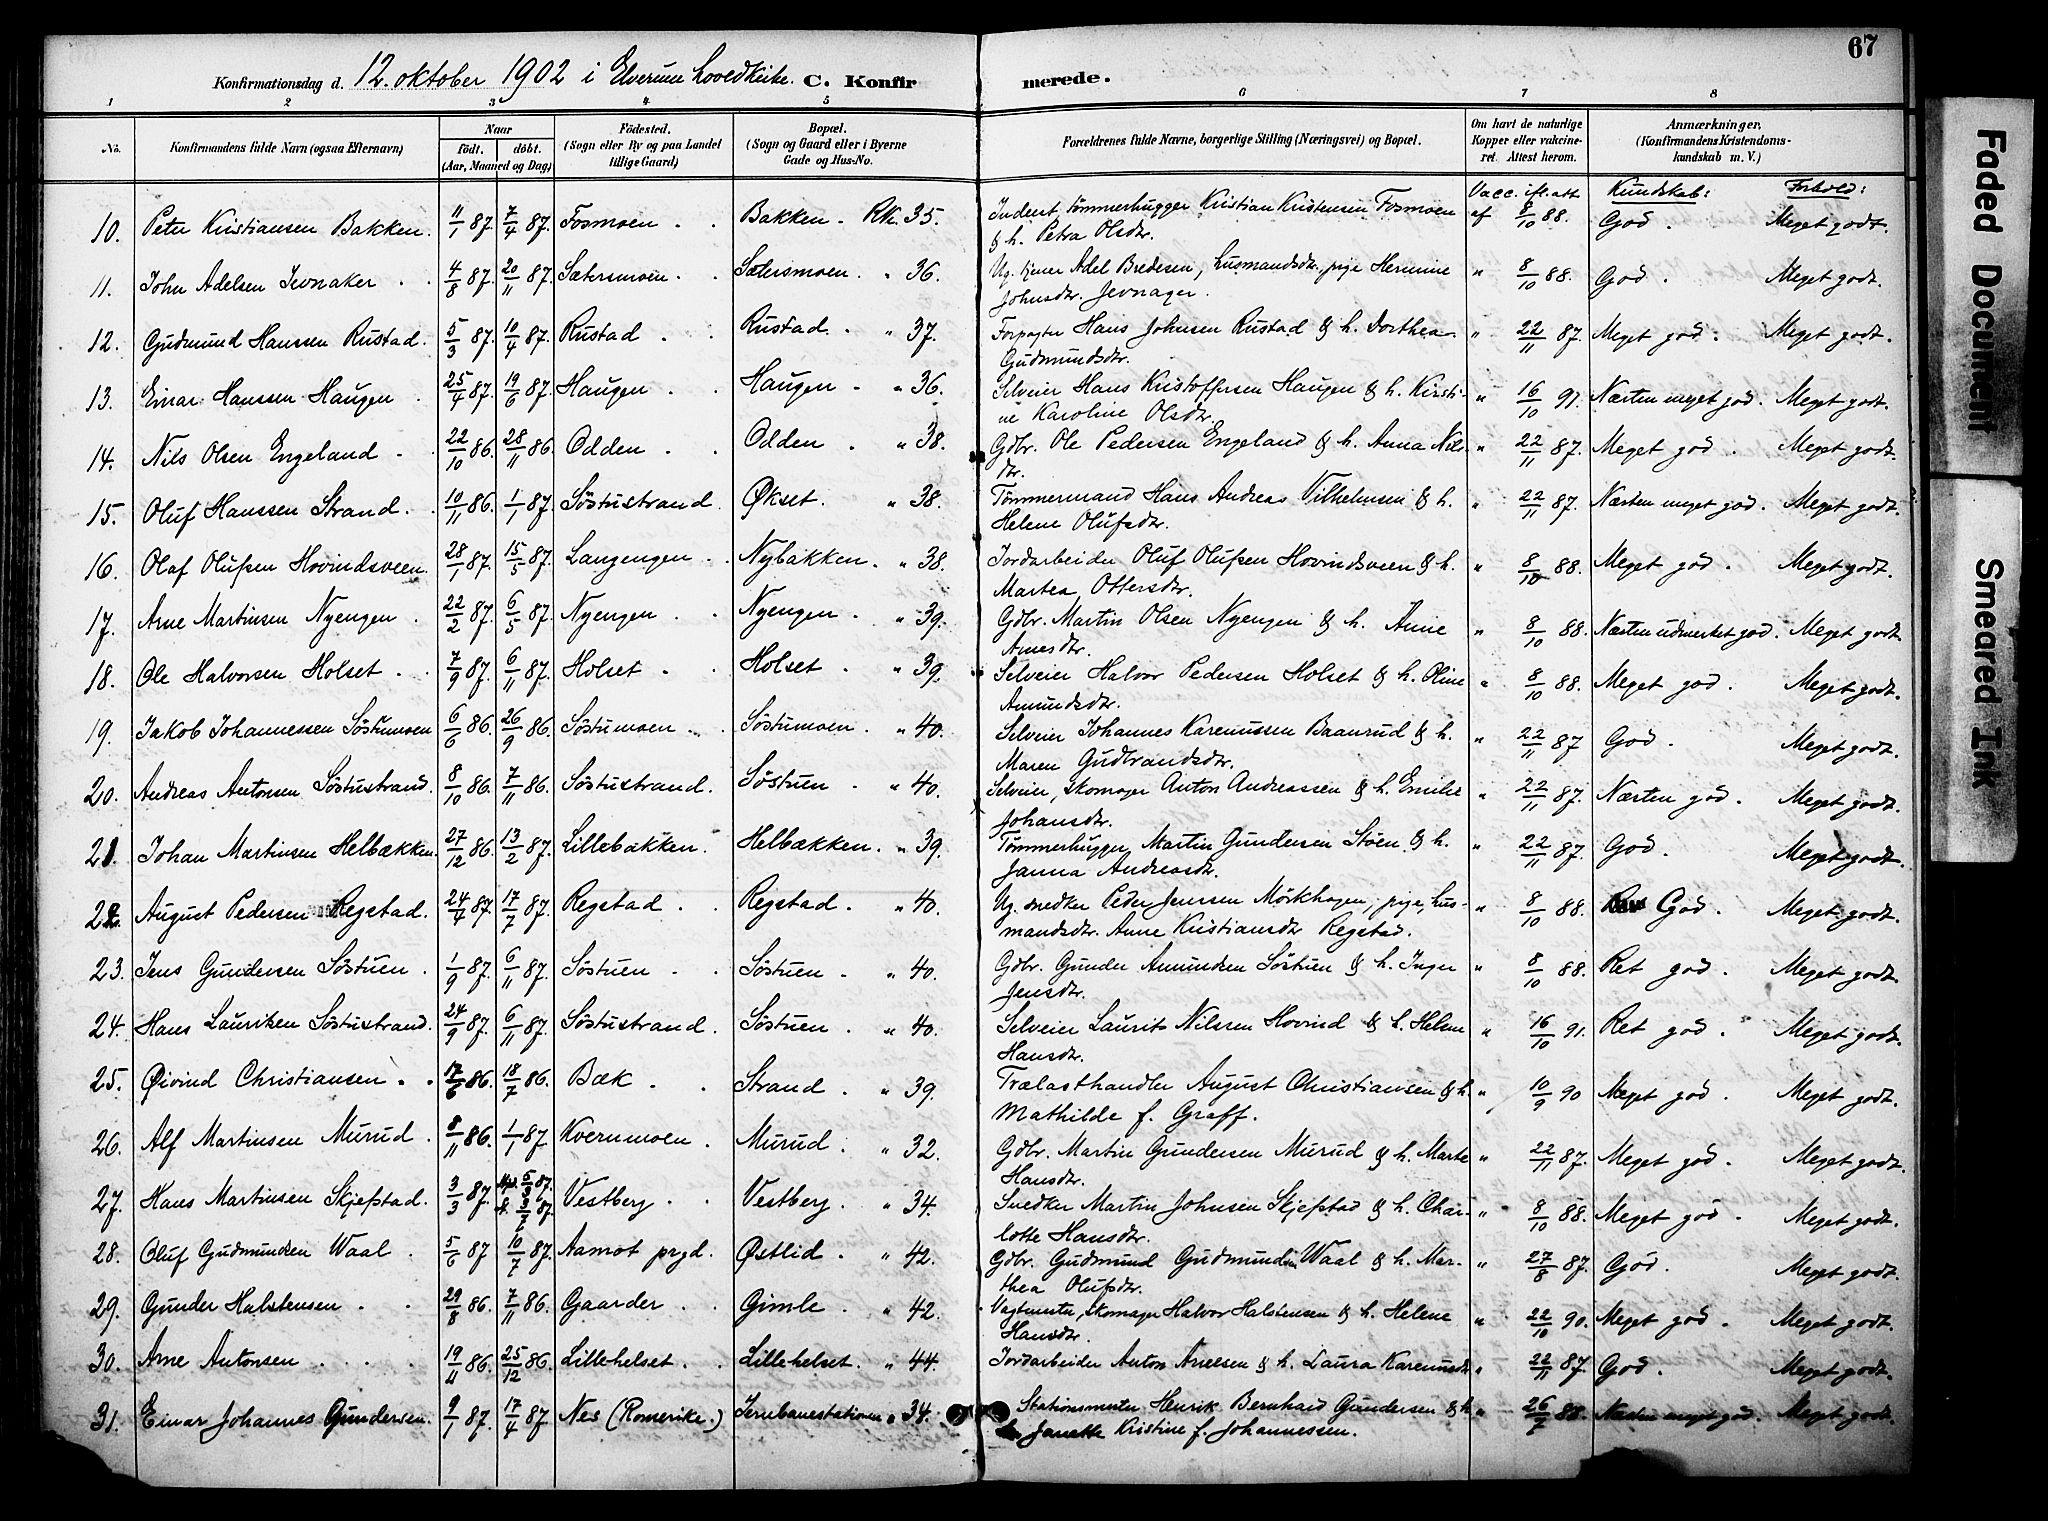 67
Konfirmationsdag d. 12. oktober 1902 i Elverum hovedkirke. C. Konfirmerede.
1 2 3 4 5 6 7 8
No. Konfirmandens fulde Navn (ogsaa Efternavn) Naar født. døbt. (Aar, Maaned og Dag) Fødested. (Sogn eller By og paa Landet tillige Gaard) Bopæl. (Sogn og Gaard eller i Byerne Gade og Hus-No.) Forældrenes fulde Navne, borgerlige Stilling (Næringsvei) og Bopæl. Om havt de naturlige Kopper eller vakcineret. Attest herom. Anmærkninger. (Konfirmandens Kristendomskundskab m. V.)
Vacc. ifl. att. Kundskab: Forhold:
10. Peter Kristiansen Bakken. 11/1 87. 7/4 87. Fosmoen . . Bakken . Rk. 35. Inderst, tømmerhugger Kristian Kristensen Fosmoen & h. Petra Olsdtr. af 8/10 88. God . Meget godt.
11. John Adelsen Jevnaker . . 4/8 87. 20/11 87. Sætersmoen . Sætersmoen . " 36. Ug. tjener Adel Bredesen, husmandsdtr., pige Hermine Johnsdtr. Jevnager. " 8/10 88. God . Meget godt.
12. Gudmund Hanssen Rustad. 5/3 87. 10/4 87. Rustad . . Rustad . " 37. Forpagter Hans Johnsen Rustad & h. Dorthea Gudmundsdtr. " 22/11 87. Meget god . Meget godt.
13. Einar Hanssen Haugen . 25/4 87. 19/6 87. Haugen . . Haugen . " 36. Selveier Hans Kristoffersen Haugen & h. Kirstine Karoline Olsdtr. " 16/10 91. Næsten meget god . Meget godt.
14. Nils Olsen Engeland . 22/10 86. 28/11 86. Odden . . Odden . " 38. Gdbr. Ole Pedersen Engeland & h. Anna Nilsdtr. " 22/11 87. Meget god . Meget godt.
15. Oluf Hanssen Strand . . 10/11 86. 1/1 87. Söstustrand . Økset . " 38. Tømmermand Hans Andreas Vilhelmsen & h. Helene Olufsdtr. " 22/11 87. Næsten meget god . Meget godt.
16. Olaf Olufsen Hovindsveen. 28/1 87. 15/5 87. Langengen . . Nybakken . " 38. Jordarbeider Oluf Olufsen Hovindsveen & h. Martea Ottersdtr. " 8/10 88. Meget god . Meget godt.
17. Arne Martinsen Nyengen . 22/2 87. 6/5 87. Nyengen . . Nyengen . " 39. Gdbr. Martin Olsen Nyengen & h. Anne Arnesdtr. " 8/10 88. Næsten udmerket god . Meget godt.
18. Ole Halvorsen Holset . . 7/9 87. 6/11 87. Holset . . Holset . " 39. Selveier Halvor Pedersen Holset & h. Oline Amundsdtr. " 8/10 88. Meget god . Meget godt.
19. Jakob Johannessen Söstumoen 6/6 86. 26/9 86. Söstumoen . . Söstumoen . " 40. Selveier Johannes Karenussen Baanrud & h. Maren Gudbrandsdtr. " 22/11 87 God . Meget godt.
20. Andreas Antonsen Söstustrand. 8/10 86. 7/11 86. Söstustrand. Söstuen . " 40. Selveier, skomager Anton Andreassen & h. Emilie Johansdtr. " 22/11 87. Næsten god . Meget godt.
21. Johan Martinsen Helbækken. 27/12 86. 13/2 87. Lillebækken. Helbækken. " 39. Tømmerhugger Martin Gundersen Støen & h. Janna Andreasdtr. " 22/11 87. God . Meget godt.
22. August Pedersen Regstad. 24/4 87. 17/7 87. Regstad . . Regstad . " 40. Ug. snedker Peder Jenssen Mörkhagen, pige, husmandsdtr. Anne Kristiansdtr Regstad. " 8/10 88. God . Meget godt.
23. Jens Gundersen Söstuen . 1/9 87. 6/11 87. Söstuen . . Söstuen . " 40. Gdbr. Gunder Amundsen Söstuen & h. Inger Jensdtr. " 8/10 88. Ret god . Meget godt.
24. Hans Lauritsen Söstustrand. 24/9 87. 6/11 87. Söstustrand. Söstuen . " 40. Selveier Laurits Nilssen Hovind & h. Helene Hansdtr. " 16/10 91. Ret god . Meget godt.
25. Øivind Christiansen . . 17/6 86. 18/7 86. Bæk . . Strand . " 39. Trælasthandler August Christiansen & h. Mathilde f. Graff. " 10/9 90 Meget god . Meget godt.
26. Alf Martinsen Murud . 8/11 86. 1/1 87. Kvernmoen . Murud . " 32. Gdbr. Martin Gundersen Murud & h. Marte Hansdtr. " 22/11 87. Meget god . Meget godt.
27. Hans Martinsen Skjefstad. 3/3 87. 5/3 87. f. 3/7 87. Vestberg . . Vestberg . " 34. Snedker Martin Johnsen Skjefstad & h. Charlotte Hansdtr. " 8/10 88. Meget god . Meget godt.
28. Oluf Gudmundsen Waal . 5/6 87 10/7 87. Aamot prgd. Østlid . " 42. Gdbr. Gudmund Gudmundsen Waal & h. Marthea Olufsdtr. " 27/8 87. God . Meget godt.
29. Gunder Halstensen . . 29/8 86. 7/11 86. Gaarder . . Gimle . " 42. Vagtmester, skomager Halvor Halstensen & h. Helene Hansdtr. " 22/10 90. Meget god . Meget godt.
30. Arne Antonsen . . . 19/11 86. 25/12 86. Lillehelset . . Lillehelset . " 44. Jordarbeider Anton Arnesen & h. Laura Karenusdtr " 22/11 87. God . Meget godt.
31. Einar Johannes Gundersen. 9/1 87. 17/4 87. Nes (Romerike.) Jernbanestationen " 34. Stationsmester Henrik Bernhard Gundersen & h. Janette Kristine f. Johannessen. " 26/7 88. Næsten meget god . Meget godt.
Faded Document
Smeared Ink